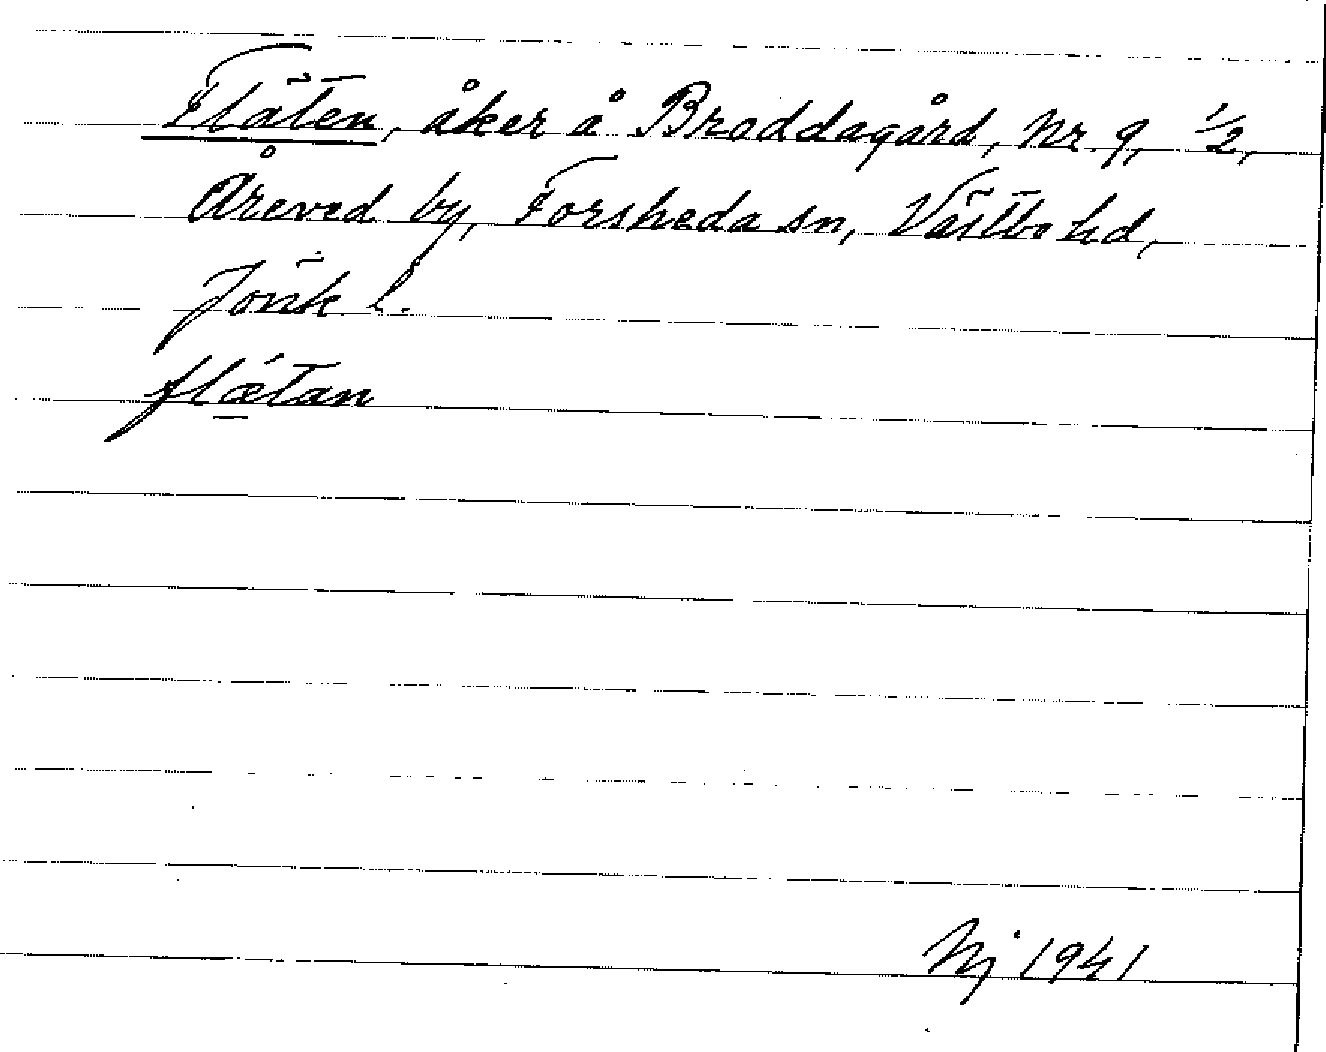 Fläten, åker å Broddagård, Nr. 9, 1/2,
Åreved by, Forsheda sn, Västbo hd,
Jönk l.
flǽtan
Nj 1941